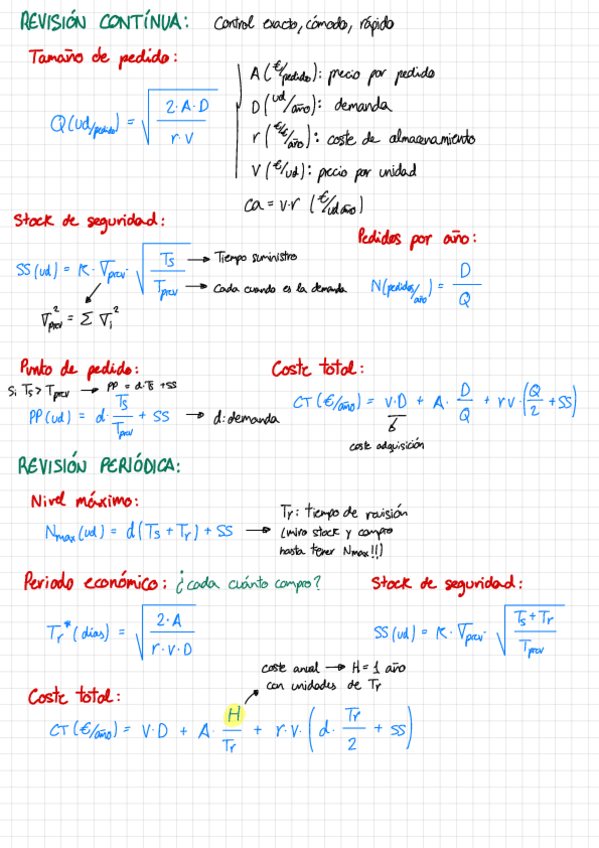 REVISIÓN CONTÍNUA: Control exacto, cómodo, rápido
Tamaño de pedido:
Q(ud/pedido) = √(2·A·D / r·v)
A (€/pedido): precio por pedido
D (ud/año): demanda
r (€/€/año): coste de almacenamiento
V (€/ud): precio por unidad
ca = v·r (€/ud año)
Stock de seguridad:
SS (ud) = K · σprev · √(Ts / Tprev)
→ Tiempo suministro
→ Cada cuando es la demanda
σ²prev = Σ σi²
Pedidos por año:
N(pedidos/año) = D / Q
Punto de pedido:
Si Ts > Tprev → PP = d·Ts + SS
PP (ud) = d · Ts / Tprev + SS → d: demanda
Coste total:
CT (€/año) = v·D + A · D / Q + r v · (Q / 2 + SS)
coste adquisición
REVISIÓN PERIÓDICA:
Nivel máximo:
Nmax (ud) = d (Ts + Tr) + SS →
Tr: tiempo de revisión
(miro stock y compro
hasta tener Nmax!!)
Periodo económico: ¿cada cuánto compro?
Tr* (días) = √(2·A / r·v·D)
Stock de seguridad:
SS (ud) = K · σprev · √(Ts + Tr / Tprev)
coste anual → H = 1 año
con unidades de Tr
Coste total:
CT (€/año) = v·D + A · H / Tr + r·v· (d · Tr / 2 + SS)